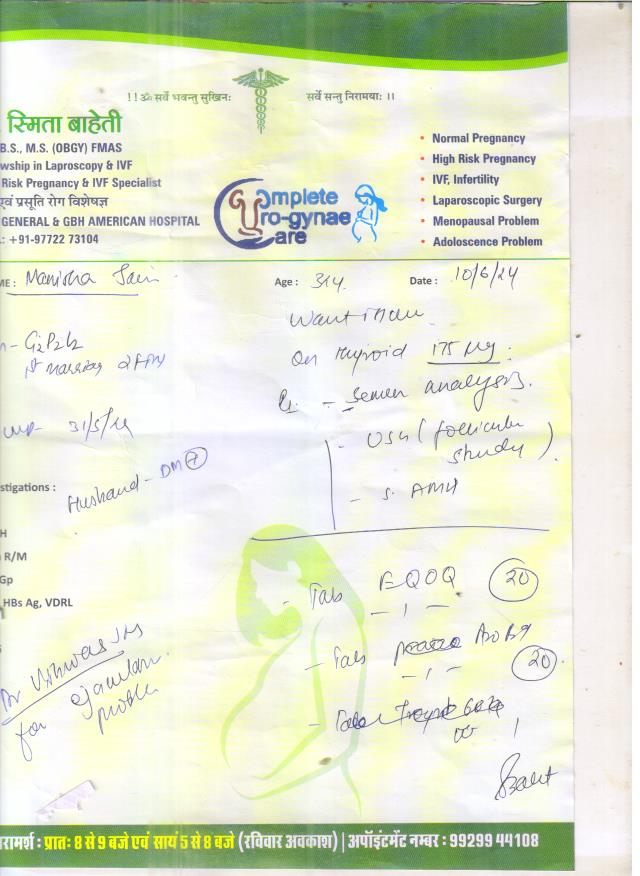 !! ॐ सर्वे भवन्तु सुखिनः सर्वे सन्तु निरामयाः ।।
स्मिता बाहेती
B.S., M.S. (OBGY) FMAS
wship in Laproscopy & IVF
Risk Pregnancy & IVF Specialist
एवं प्रसूति रोग विशेषज्ञ
GENERAL & GBH AMERICAN HOSPITAL
: +91-97722 73104
Complete
Uro-gynae
Care
• Normal Pregnancy
• High Risk Pregnancy
• IVF, Infertility
• Laparoscopic Surgery
• Menopausal Problem
• Adoloscence Problem
ME : Manisha Jain Age : 34 Date : 10/6/24
G2P2L2
On thyroid 175 mg :
- Semen analysis.
31/5/24
- USG (follicular study)
stigations :
Husband - DM +
- S. AMH
H
R/M
Gp
HBs Ag, VDRL
- Tab EQOQ 20
- 1 -
Dr Vishwas
- Tab
- 1 - 20
for ejaculation
problem
- Tab
रामर्श : प्रातः 8 से 9 बजे एवं सायं 5 से 8 बजे (रविवार अवकाश) | अपॉइंटमेंट नम्बर : 99299 44108